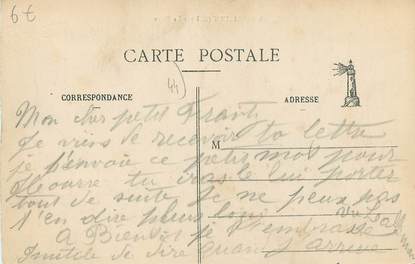 6€
CARTE POSTALE
44
CORRESPONDANCE
ADRESSE
Mon cher petit
Je viens de recevoir ta lettre
M
je t'envoie ce petit mot pour
tu iras le lui porter
tout de suite Je ne peux pas
t'en dire plus long
A Bientôt je t'embrasse
Inutile de dire quand j'arrive